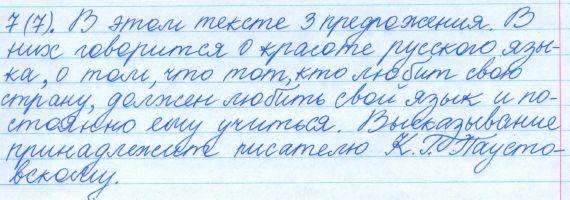 7(7). В этом тексте 3 предложения. В
них говорится о красоте русского язы-
ка, о том, что тот, кто любит свою
страну, должен любить свой язык и по-
стоянно ему учиться. Высказывание
принадлежит писателю К.Г. Паусто-
вскому.